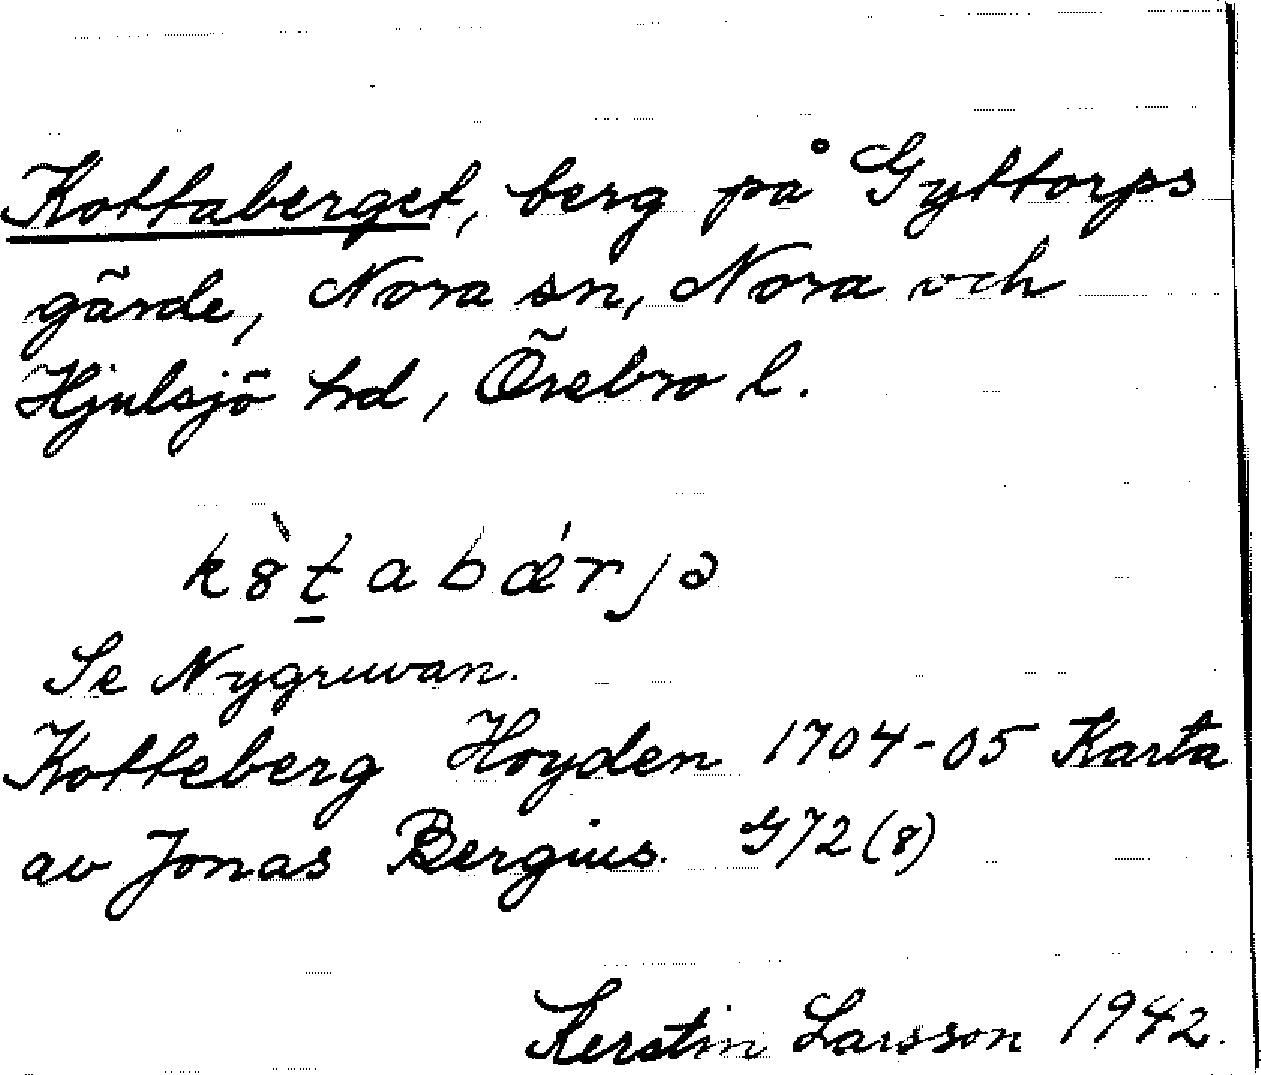 Kottaberget, berg på Gyttorps
gärde, Nora sn, Nora och
Hjulsjö hd, Örebro l.
k8̀t̲abǽrjə
Se Nygruvan.
Kotteberg Hoyden 1704-05 Karta
av Jonas Bergius. G72(8)
Kerstin Larsson 1942.